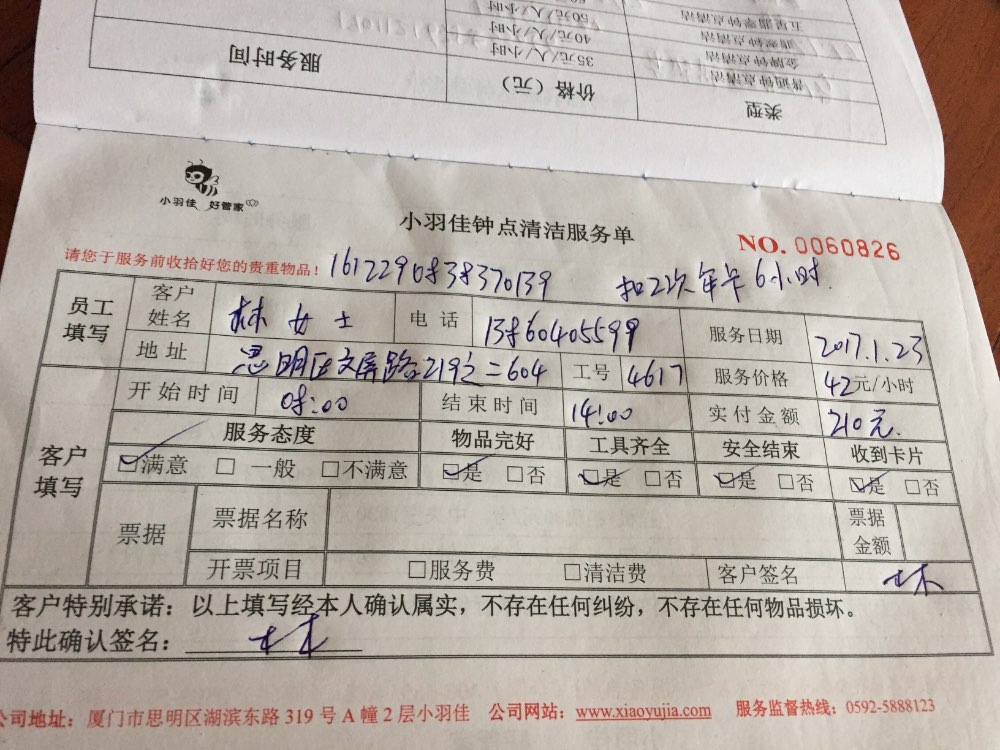 五星超零钟点清洁 50元/人/小时
钟点清洁 40元/人/小时
金牌钟点清洁 35元/人/小时
普通钟点清洁
类型 价格（元） 服务时间
小羽佳 好管家
小羽佳钟点清洁服务单
NO. 0060826
请您于服务前收拾好您的贵重物品！ 161229083838370139 扣2次年卡6小时.
员工填写 客户姓名 林女士 电话 13860405599 服务日期 2017.1.23
地址 思明区文屏路219之二604 工号 4617 服务价格 42元/小时
客户填写 开始时间 08:00 结束时间 14:00 实付金额 210元.
服务态度 物品完好 工具齐全 安全结束 收到卡片
☑满意 □一般 □不满意 ☑是 □否 ☑是 □否 ☑是 □否 ☑是 □否
票据 票据名称 票据金额
开票项目 □服务费 □清洁费 客户签名 林
客户特别承诺：以上填写经本人确认属实，不存在任何纠纷，不存在任何物品损坏。
特此确认签名： 林
公司地址：厦门市思明区湖滨东路 319 号 A 幢 2 层小羽佳 公司网站：www.xiaoyujia.com 服务监督热线：0592-5888123